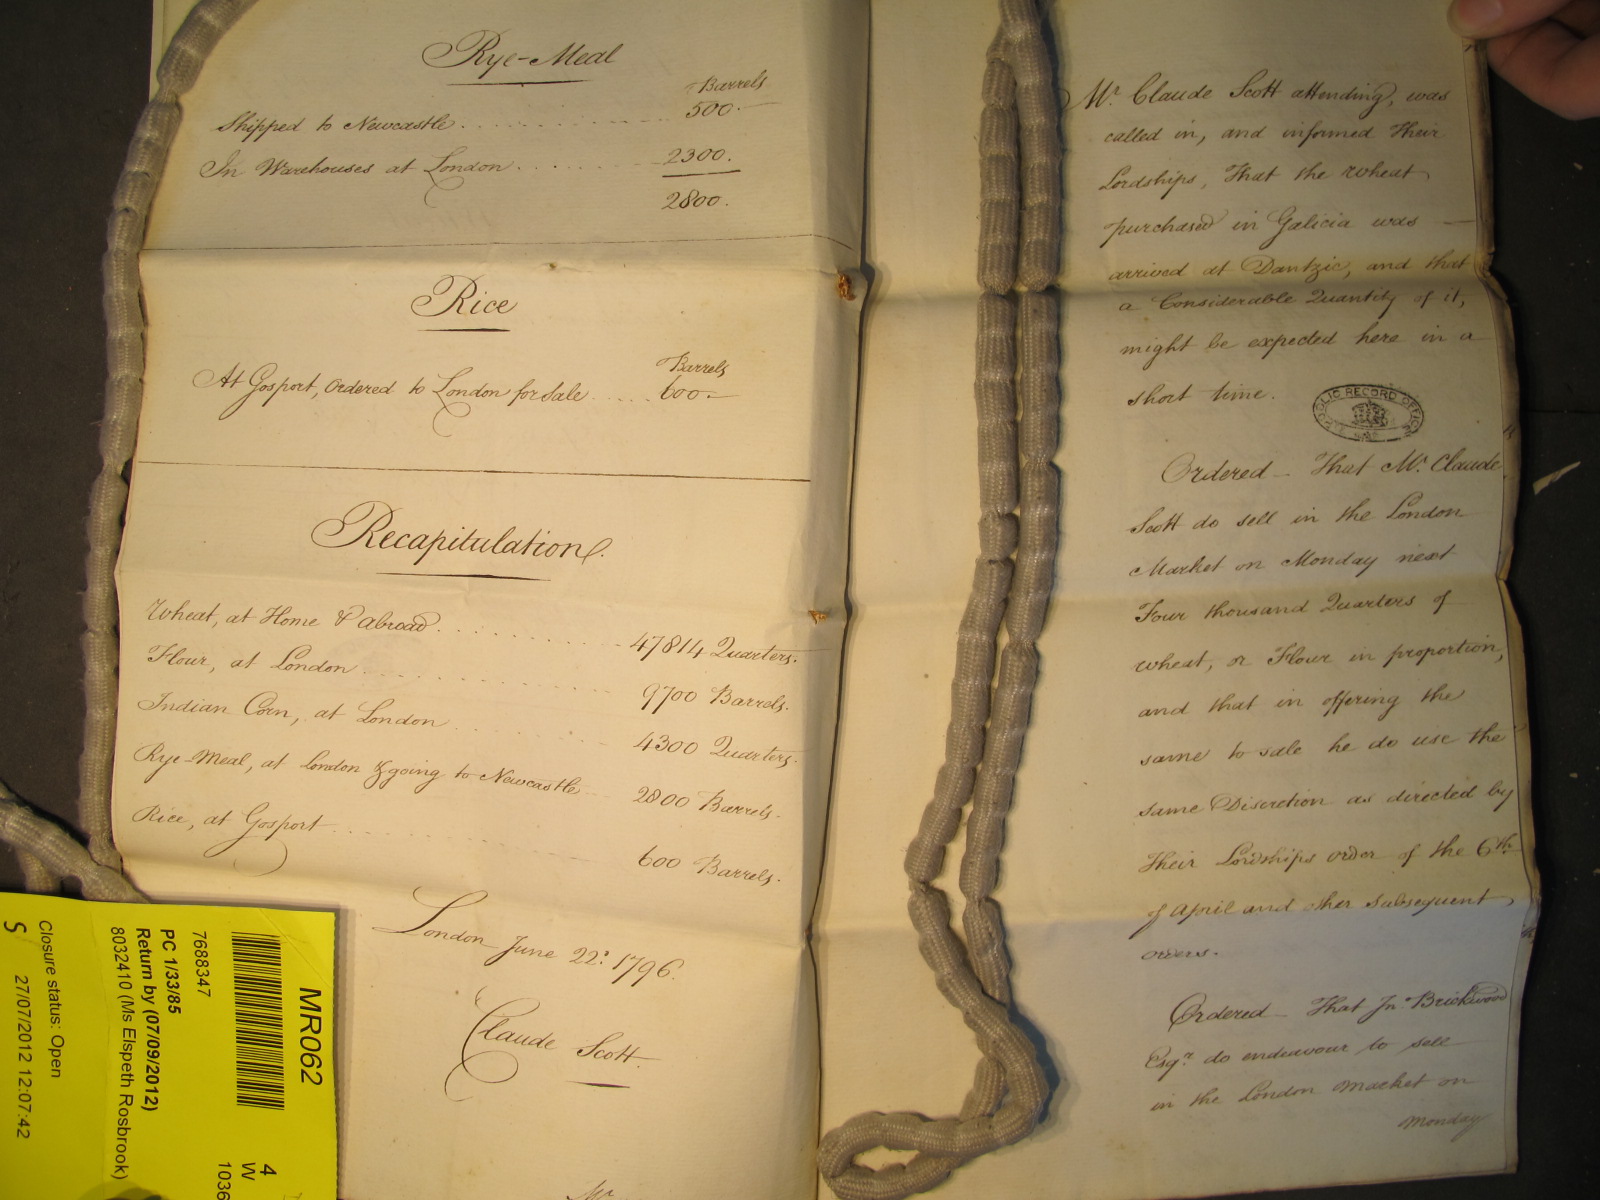 Rye-Meal
Barrels
Shipped to Newcastle 500.
In Warehouses at London 2300.
2800.
Rice
Barrels
At Gosport, Ordered to London for Sale 600.
Recapitulation.
Wheat, at Home & Abroad 47814 Quarters.
Flour, at London 9700 Barrels.
Indian Corn, at London 4300 Quarters.
Rye Meal, at London & going to Newcastle 2800 Barrels.
Rice, at Gosport 600 Barrels.
London June 22: 1796.
Claude Scott.
Mr.
Mr. Claude Scott attending, was
called in, and informed Their
Lordships, That the Wheat
purchased in Galicia was
arrived at Dantzic, and that
a Considerable Quantity of it,
might be expected here in a
short time.
PUBLIC RECORD OFFICE
Ordered - That Mr. Claude
Scott do sell in the London
Market on Monday next
Four thousand Quarters of
Wheat, or Flour in proportion,
and that in offering the
same to sale he do use the
same Discretion as directed by
Their Lordships order of the 6th
of April and other Subsequent
orders.
Ordered - That Jn. Brickwood
Esqr. do endeavour to sell
in the London Market on
Monday
MR062
7688347
PC 1/33/85
Return by (07/09/2012)
8032410 (Ms Elspeth Rosbrook)
Closure status: Open
27/07/2012 12:07:42
S
4
W
1036